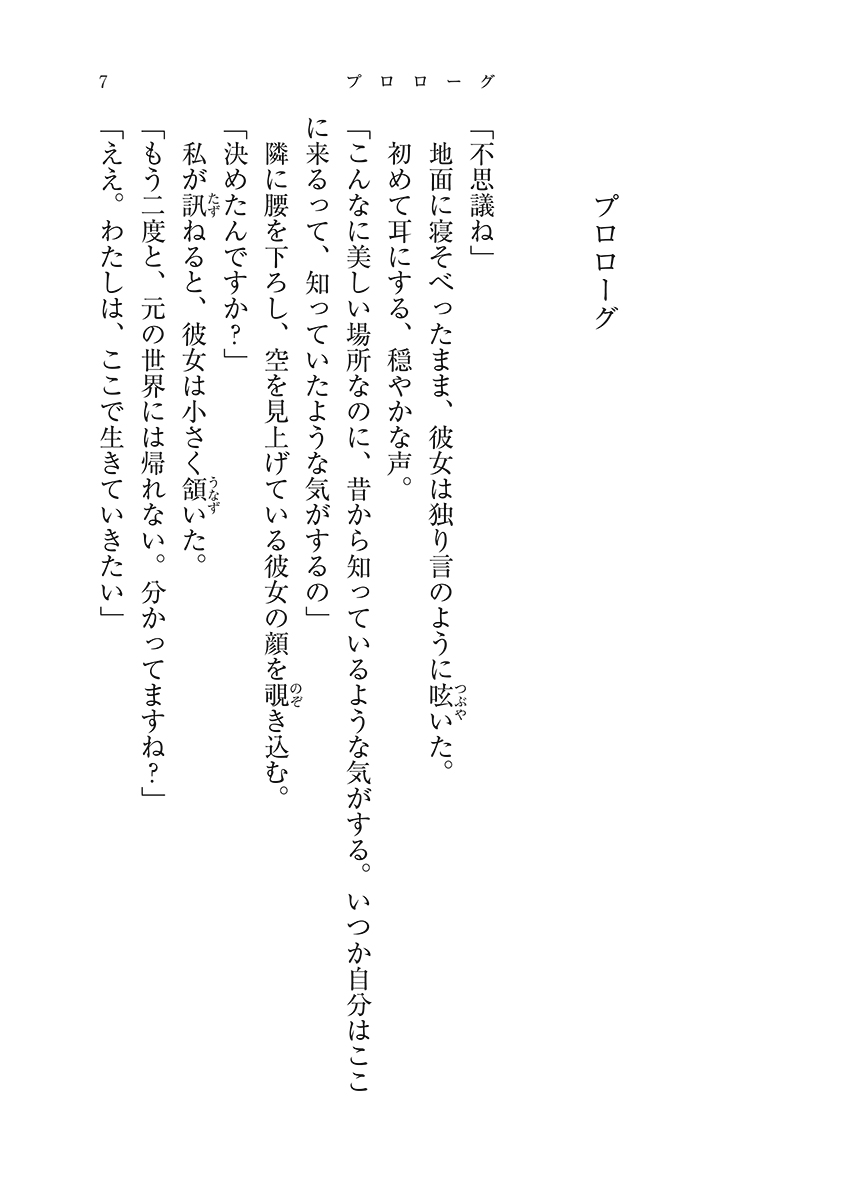 7
プロローグ
プロローグ
「不思議ね」
地面に寝そべったまま、彼女は独り言のように呟いた。
つぶや
初めて耳にする、穏やかな声。
「こんなに美しい場所なのに、昔から知っているような気がする。いつか自分はここ
に来るって、知っていたような気がするの」
隣に腰を下ろし、空を見上げている彼女の顔を覗き込む。
のぞ
「決めたんですか？」
私が訊ねると、彼女は小さく頷いた。
たず
うなず
「もう二度と、元の世界には帰れない。分かってますね？」
「ええ。わたしは、ここで生きていきたい」